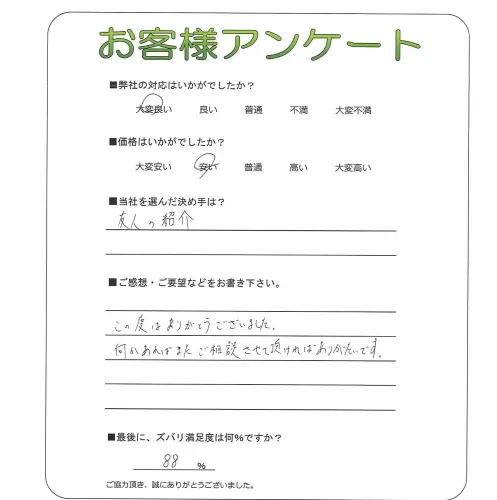 お客様アンケート
■弊社の対応はいかがでしたか？
大変良い 良い 普通 不満 大変不満
■価格はいかがでしたか？
大変安い 安い 普通 高い 大変高い
■当社を選んだ決め手は？
友人の紹介
■ご感想・ご要望などをお書き下さい。
この度はありがとうございました。
何かあればまたご相談させて頂ければありがたいです。
■最後に、ズバリ満足度は何％ですか？
88 ％
ご協力頂き、誠にありがとうございました。